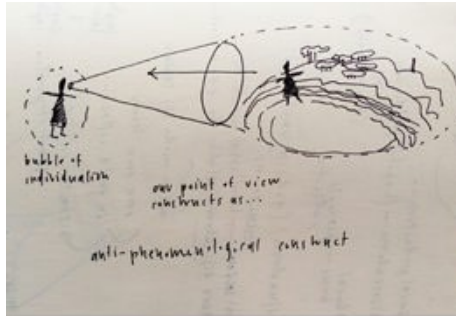 bubble of
individualism
our point of view
constructs as...
anti-phenomenological construct